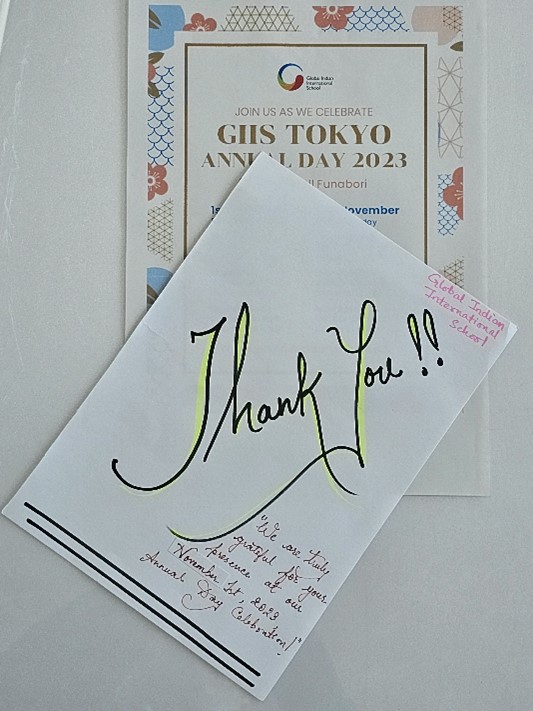 Global Indian
International
School
JOIN US AS WE CELEBRATE
GIIS TOKYO
ANNUAL DAY 2023
Funabori
1st November
Global Indian
International
School
Thank You !!
"We are truly
grateful for your
presence at our
November 1st, 2023
Annual Day Celebration!"